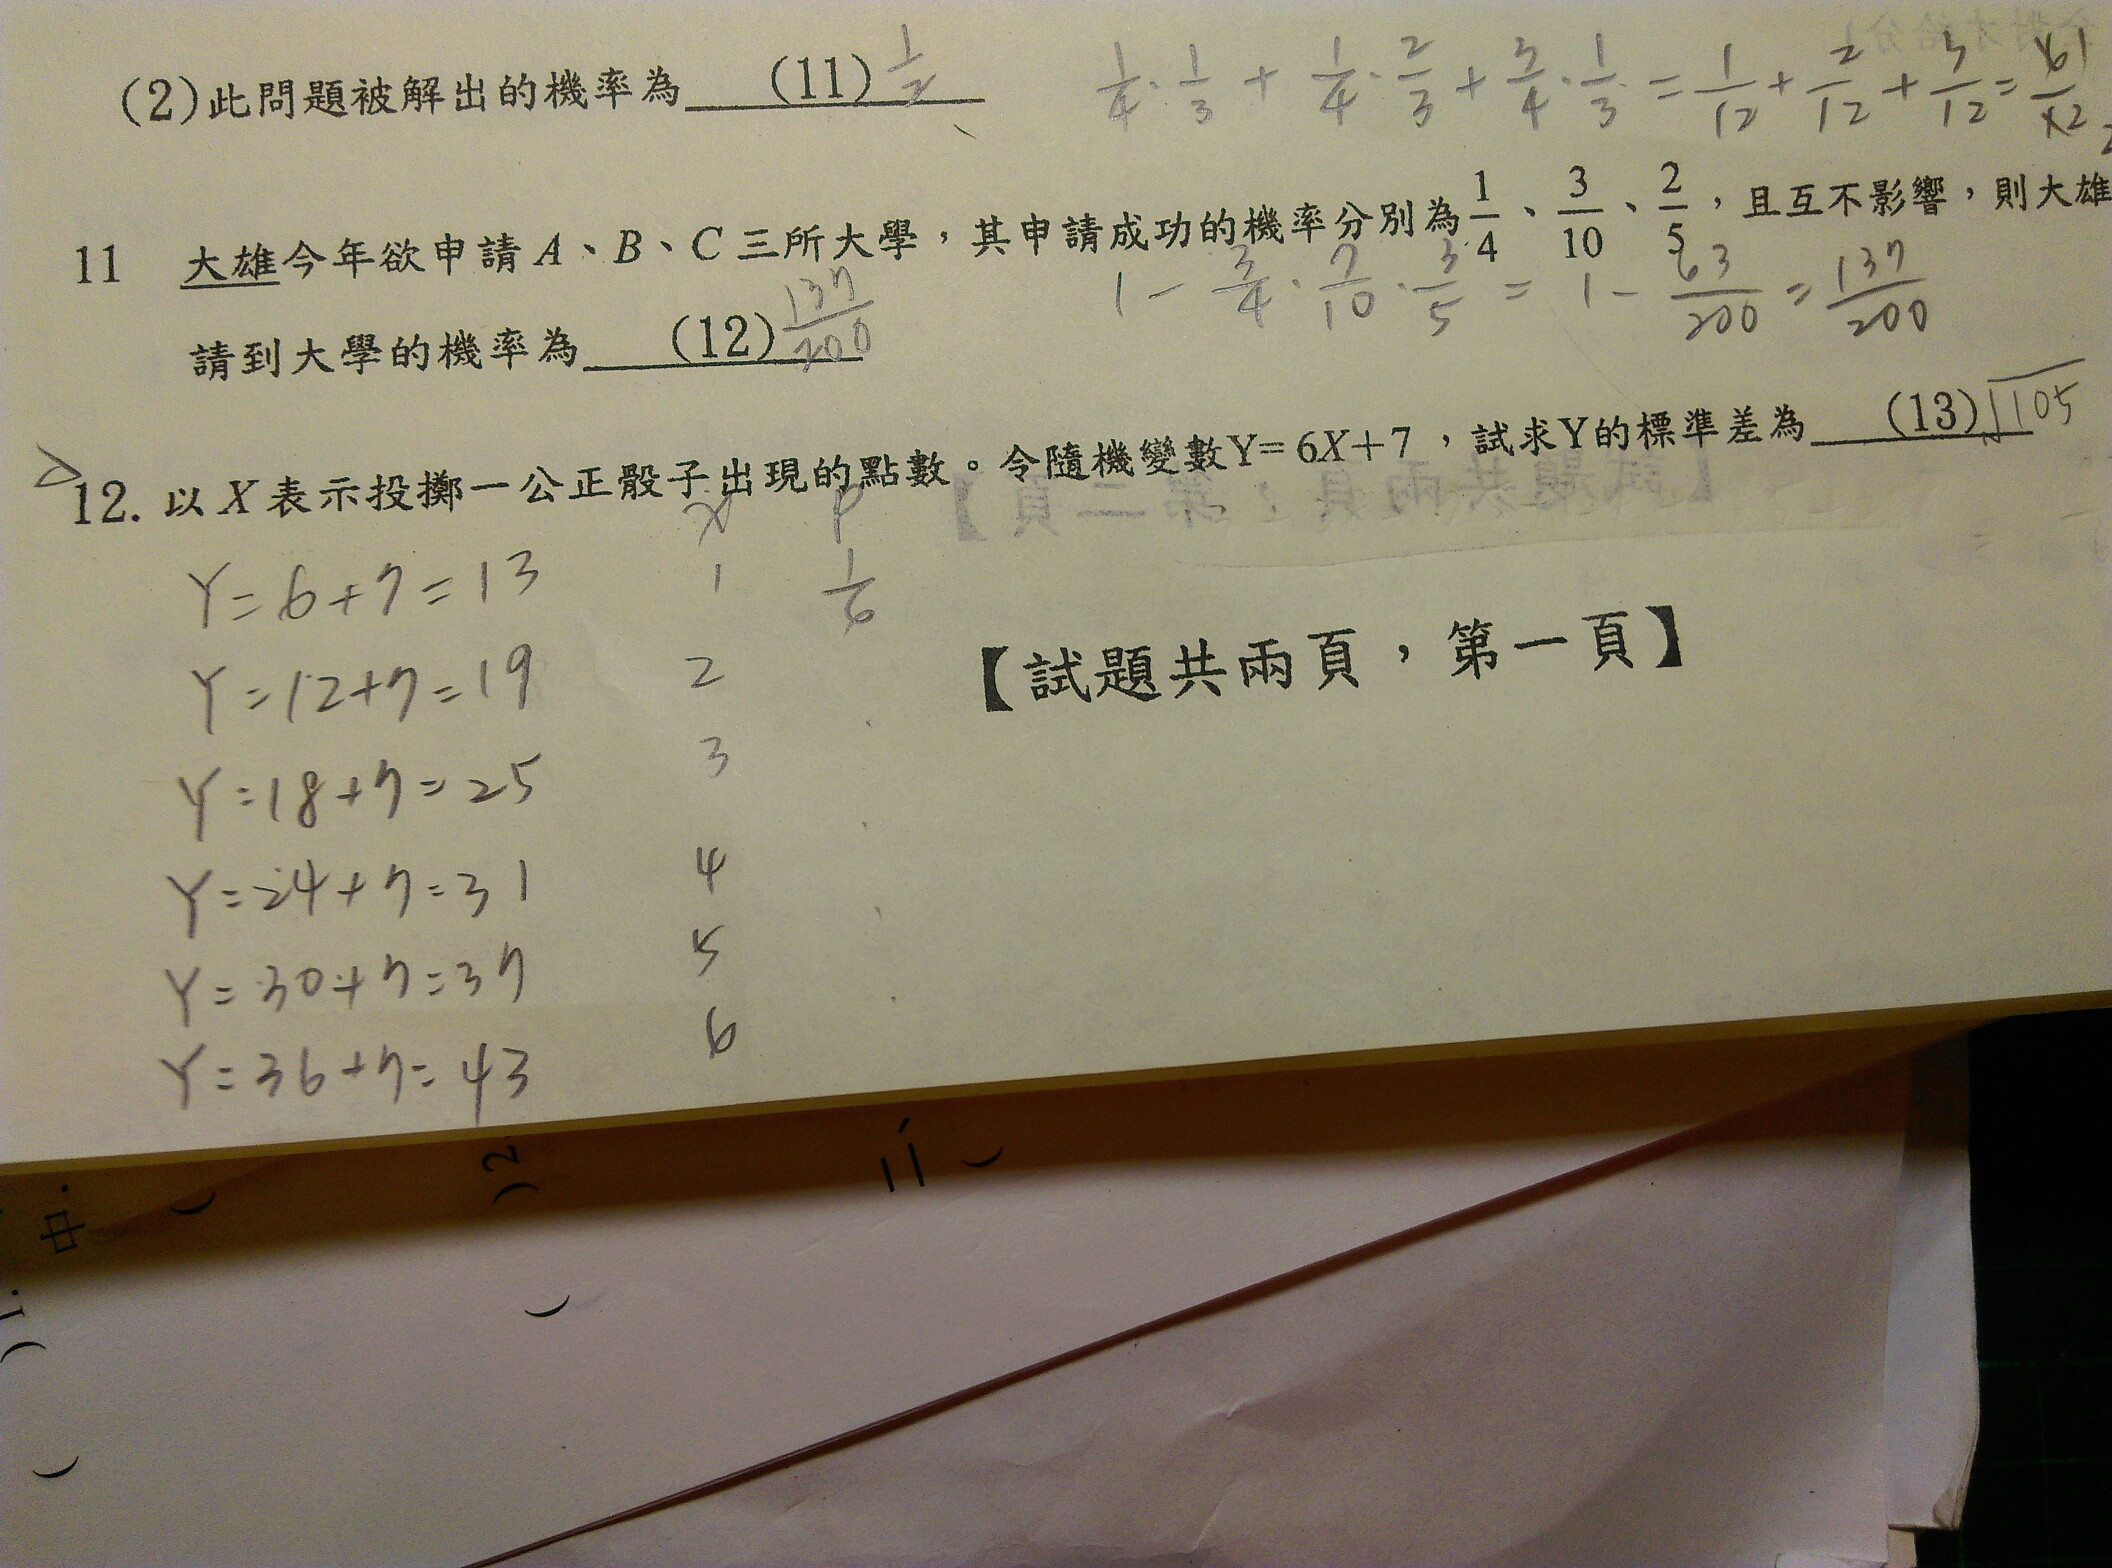 (2)此問題被解出的機率為 (11) 1/2 1/4·1/3+1/4·2/3+3/4·1/3=1/12+2/12+3/12=6/12 1/2
11 大雄今年欲申請A、B、C三所大學，其申請成功的機率分別為1/4、3/10、2/5，且互不影響，則大雄
1-3/4·7/10·3/5=1-63/200=137/200
請到大學的機率為 (12) 137/200
12. 以X表示投擲一公正骰子出現的點數。令隨機變數Y=6X+7，試求Y的標準差為 (13) √105
x P
Y=6+7=13 1 1/6
Y=12+7=19 2
【試題共兩頁，第一頁】
Y=18+7=25 3
Y=24+7=31 4
Y=30+7=37 5
Y=36+7=43 6
中.
)2.
二、